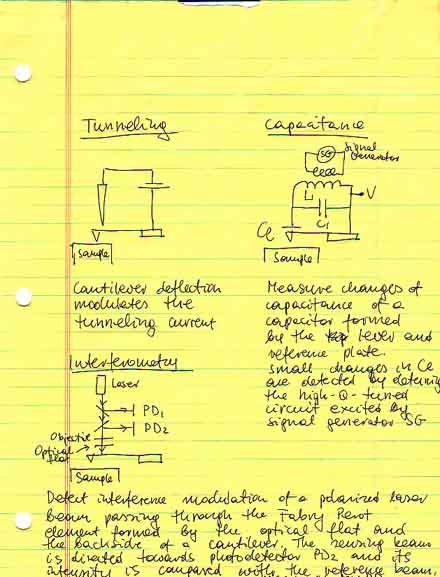 Tunneling
Sample
Cantilever deflection
modulates the
tunneling current
Capacitance
SG
Signal
Generator
L
V
C1
Cl
Sample
Measure changes of
capacitance of a
capacitor formed
by the lever and
reference plate.
Small changes in Cl
are detected by detuning
the high-Q-tuned
circuit excited by
signal generator SG
Interferometry
Laser
PD1
PD2
Objective
Optical
flat
Sample
Detect interference modulation of a polarized laser
beam passing through the Fabry Perot
element formed by the optical flat and
the backside of a cantilever. The sensing beam
is directed towards photodetector PD2 and its
intensity is compared with the reference beam.